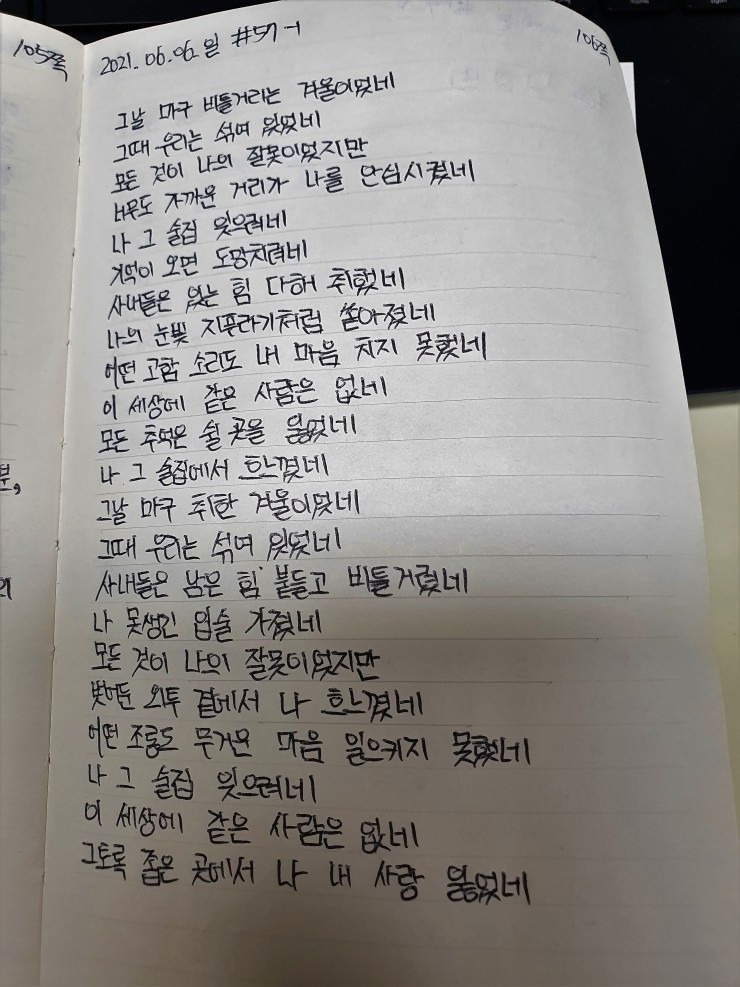 105쪽
2021. 06. 06. 일 #57-1
106쪽
그날 마구 비틀거리는 겨울이었네
그때 우리는 섞여 있었네
모든 것이 나의 잘못이었지만
너무도 가까운 거리가 나를 안심시켰네
나 그 술집 잊으려네
기억이 오면 도망치려네
사내들은 있는 힘 다해 취했네
나의 눈빛 지푸라기처럼 쏟아졌네
어떤 고함 소리도 내 마음 치지 못했네
이 세상에 같은 사람은 없네
모든 추억은 쉴 곳을 잃었네
나 그 술집에서 흐느꼈네
그날 마구 취한 겨울이었네
그때 우리는 섞여 있었네
사내들은 남은 힘 붙들고 비틀거렸네
나 못생긴 입술 가졌네
모든 것이 나의 잘못이었지만
벗어둔 외투 곁에서 나 흐느꼈네
어떤 조롱도 무거운 마음 일으키지 못했네
나 그 술집 잊으려네
이 세상에 같은 사람은 없네
그토록 좁은 곳에서 나 내 사랑 잃었네